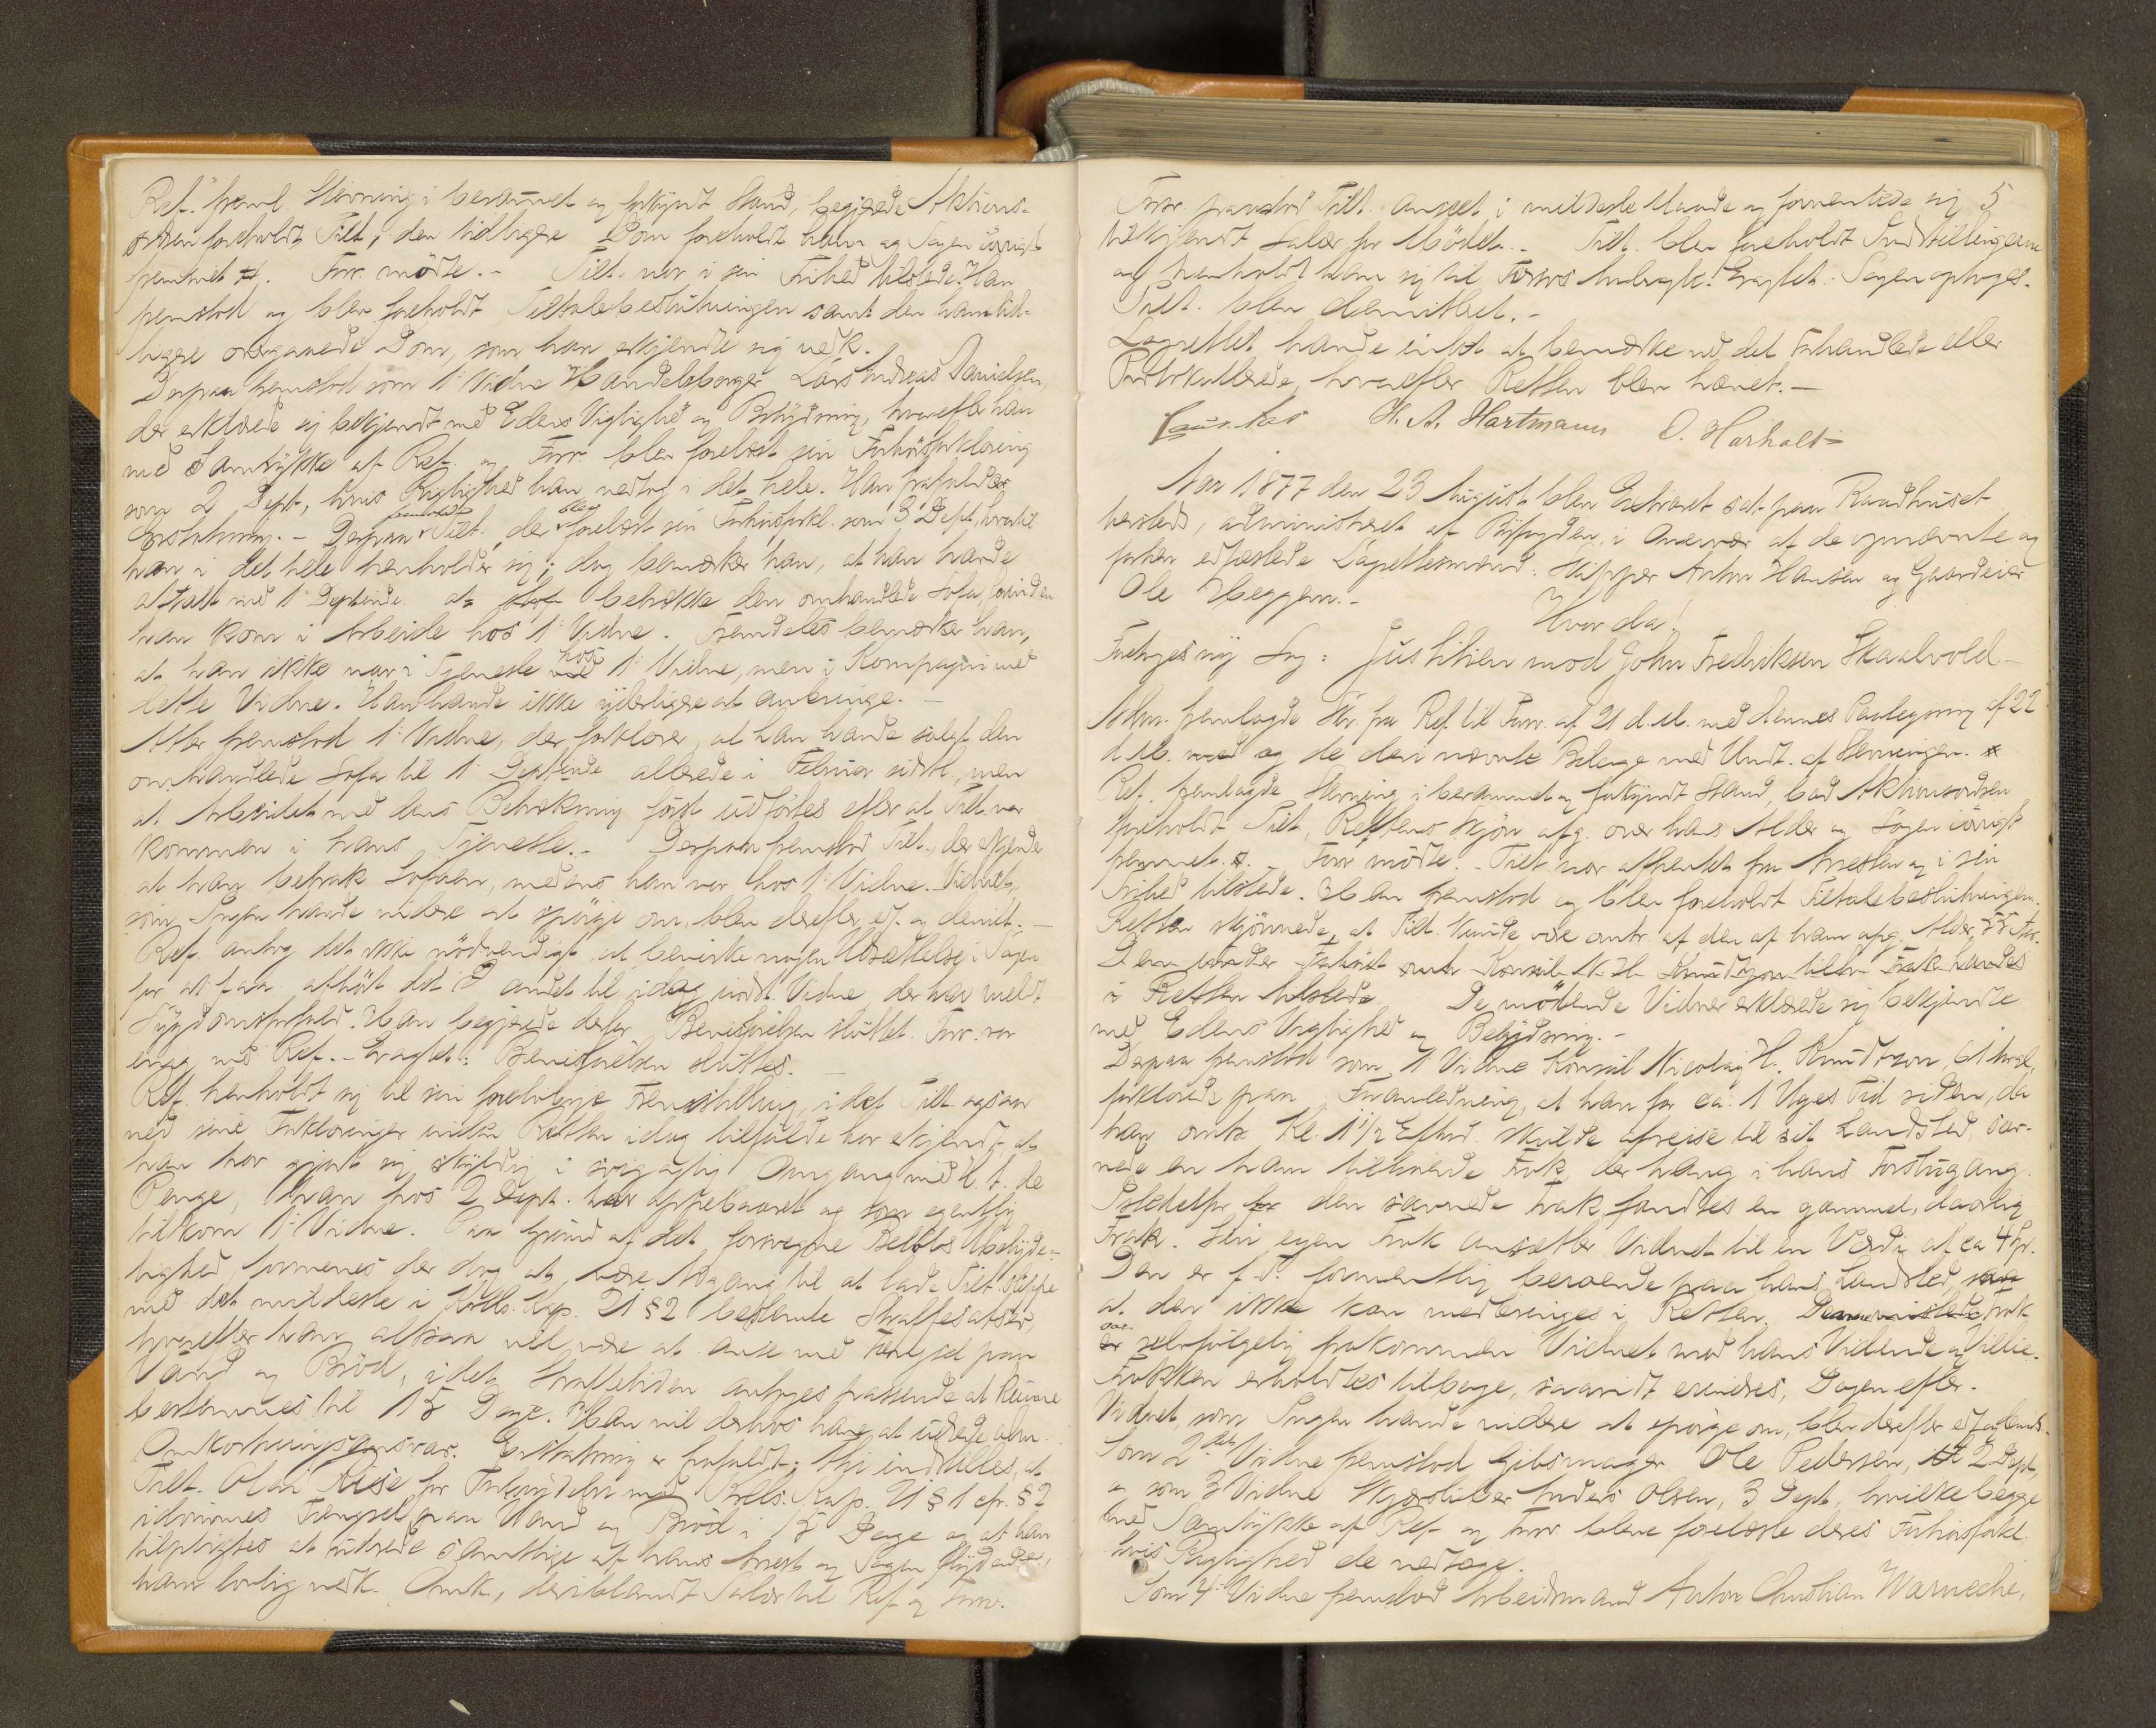 Ref. freml. Stævning i beramet og forkyndt Stand, begjærede Aktions-
ordren foreholdt Tilt, den tidligere Dom foreholdt ham og Sagen iövrigt
fremmet. Forr. mödte.- Tilt. var i sin Frihed tilstede. Han
fremstod og blev foreholdt Tiltalebeslutningen samt den ham tid-
ligere overgaaede Dom, som han erkjendte sig vedk.
Derpaa fremstod som 1' Vidne Handelsborger Lars Andreas Danielsen,
der erklærede sig bekjendt med Edens Vigtighed og Betydning, hvorefter han
med Samtykke af Ref. og Forr. blev forelæst sin Forhörsforklaring
som 2 Dept, hvis Rigtighed han vedtog i det hele. Han frafalder
Erstatning.- Derpaa fremstod Tilt, der blev forelæst sin Forhörsforkl. som 3' Dept, hvortil
han i det hele henholder sig; dog bemærker han, at han havde
aftalt med 1' Deptinde at betrække den omhandlede Sofa, forinden
han kom i Arbeide hos 1' Vidne. Fremdeles bemærker han,
at han ikke var i Tjeneste hos 1' Vidne, men i Kompagni med
dette Vidne. Han havde ikke yderligere at anbringe.-
Atter fremstod 1' Vidne, der forklarer, at han havde solgt den
omhandlede Sofa til 1' Deptinde allerede i Februar sidstl., men
at Arbeidet med dens Betrækning först udförtes efter at Tilt. var
kommen i hans Tjeneste.- Derpaa fremstod Tilt., der erkjender
at han betrak Sofaen, medens han var hos 1' Vidne. Vidnet,
som Ingen havde videre at spörge om, blev derefter edf. og demitt.-
Ref. antog det ikke nödvendigt at bevirke nogen Udsættelse i Sagen
for at faa afhört det andet til idag indst. Vidne, der har meldt
Sygdomsforfald. Han begjærede derfor Bevisförelsen sluttet. Forr. var
enig med Ref.- Eragtet: Bevisförelsen sluttes.-
Ref. henholdt sig til sin foreløbige Fremstilling, idet Tilt. ogsaa
ved sine Forklaringer inden Retten idag tilfulde har erkjendt, at
han har gjort sig skyldig i svigagtig Omgang med H. t. de
Penge, han hos 2 Dept. har oppebaaret og som egentlig
tilkom 1' Vidne. Paa Grund af det forsvegne Belöbs Ubetyde-
lighed formenes der dog at være Adgang til at lade Tilt. slippe
med det mildeste i Krlls. Kap. 21 § 2 bestemte Straffesatser,
hvorefter han altsaa vil være at anse med Fængsel paa
Vand og Bröd, idet Straffetiden antages passende at kunne
bestemmes til 15 Dage. Han vil derhos have at udrede alm.
Omkostningsansvar. Erstatning er frafaldt; thi indstilles, at
Tilt. Olai Riise for Forbrydelse mod Krlls. Kap. 21 § 1 cfr. § 2
idömmes Fængsel paa Vand og Bröd i 15 Dage og at han
tilpligtes at udrede samtlige af hans Arrest og Sagen flydende,
ham lovlig vedk. Omk., deriblandt Salær til Ref. og Forr.
Forr. paastod Tilt. anseet i mildeste Maade og forventede sig 5
tilkjendt Salær for Mödet.- Tilt. blev foreholdt Indstillingerne
og henholdt han sig til Forrs Anbragte. Eragtet: Sagen optages.
Tilt. blev demitteret.-
Lagrettet havde intet at bemærke ved det Forhandlede eller
Protokollerede, hvorefter Retten blev hævet.-
H. A. Hartmann O. Harhalt
Aar 1877 den 23 August blev Extraret sat paa Raadhuset
hersteds, administreret af Byfogden, i Overvær af de opnævnte og
forhen edfæstede Lagrettesmænd: Skipper Anton Hansen og Gaardeier
Ole Heggem.-
Hvor da!
Foretoges ny Sag: Justitien mod John Fredriksen Skaalvold.-
Adm. fremlagde Skr. fra Ref. til Forr. af 21 d. M. med dennes Paategning af 22
d. M. og de deri nævnte Bilage med Undt. af Stævningen.
Ref. fremlagde Stævning i beramet og forkyndt Stand, bad Aktionsordren
foreholdt Tilt, Rettens Skjön afg. over hans Alder og Sagen iövrigt
fremmet.- Forr. mödte.- Tilt. var afhentet fra Arresten og i sin
Frihed tilstede. Han fremstod og blev foreholdt Tiltalebeslutningen.
Retten skjönnede, at Tilt. kunde være omtr. af den af ham opg. Alder, 55 Aar.
Den under Forhöret omh. Konsul N. H. Knudtzon tilh. Frak havdes
i Retten tilstede. De mödende Vidner erklærede sig bekjendte
med Edens Vigtighed og Betydning.-
Derpaa fremstod som 1' Vidne Konsul Nicolay H. Knudtzon,
forklarede paa Foranledning, at han for ca. 1 Uges Tid siden, da
han omtr. Kl. 1 1/2 Efterm. skulde afreise til sit Landsted, sav-
nede en ham tilhörende Frak, der hang i hans Forstugang.
Istedetfor den savnede Frak fandtes en gammel, daarlig
Frak. Sin egen Frak ansætter Vidnet til en Værdi af ca 4 Kr.
Den er f. T. formentlig beroende paa hans Landsted, saa
at den ikke kan medbringes i Retten. Frak
er selvfölgelig frakommen Vidnet mod hans Vidende og Villie.
Frakken erholdtes tilbage, saavidt erindres, Dagen efter.
Vidnet, som Ingen havde videre at spörge om, blev derefter edf. og demit.
Som 2det Vidne fremstod Gibsmager Ole Pedersen, 2 Dept,
og som 3 Vidne Skjærsliber Anders Olsen, 3 Dept, hvilke begge
med Samtykke af Ref. og Forr. bleve forelæste deres Forhörsforkl.
hvis Rigtighed de vedtoge.
Som 4' Vidne fremstod Arbeidsmand Anton Christian Warneche,